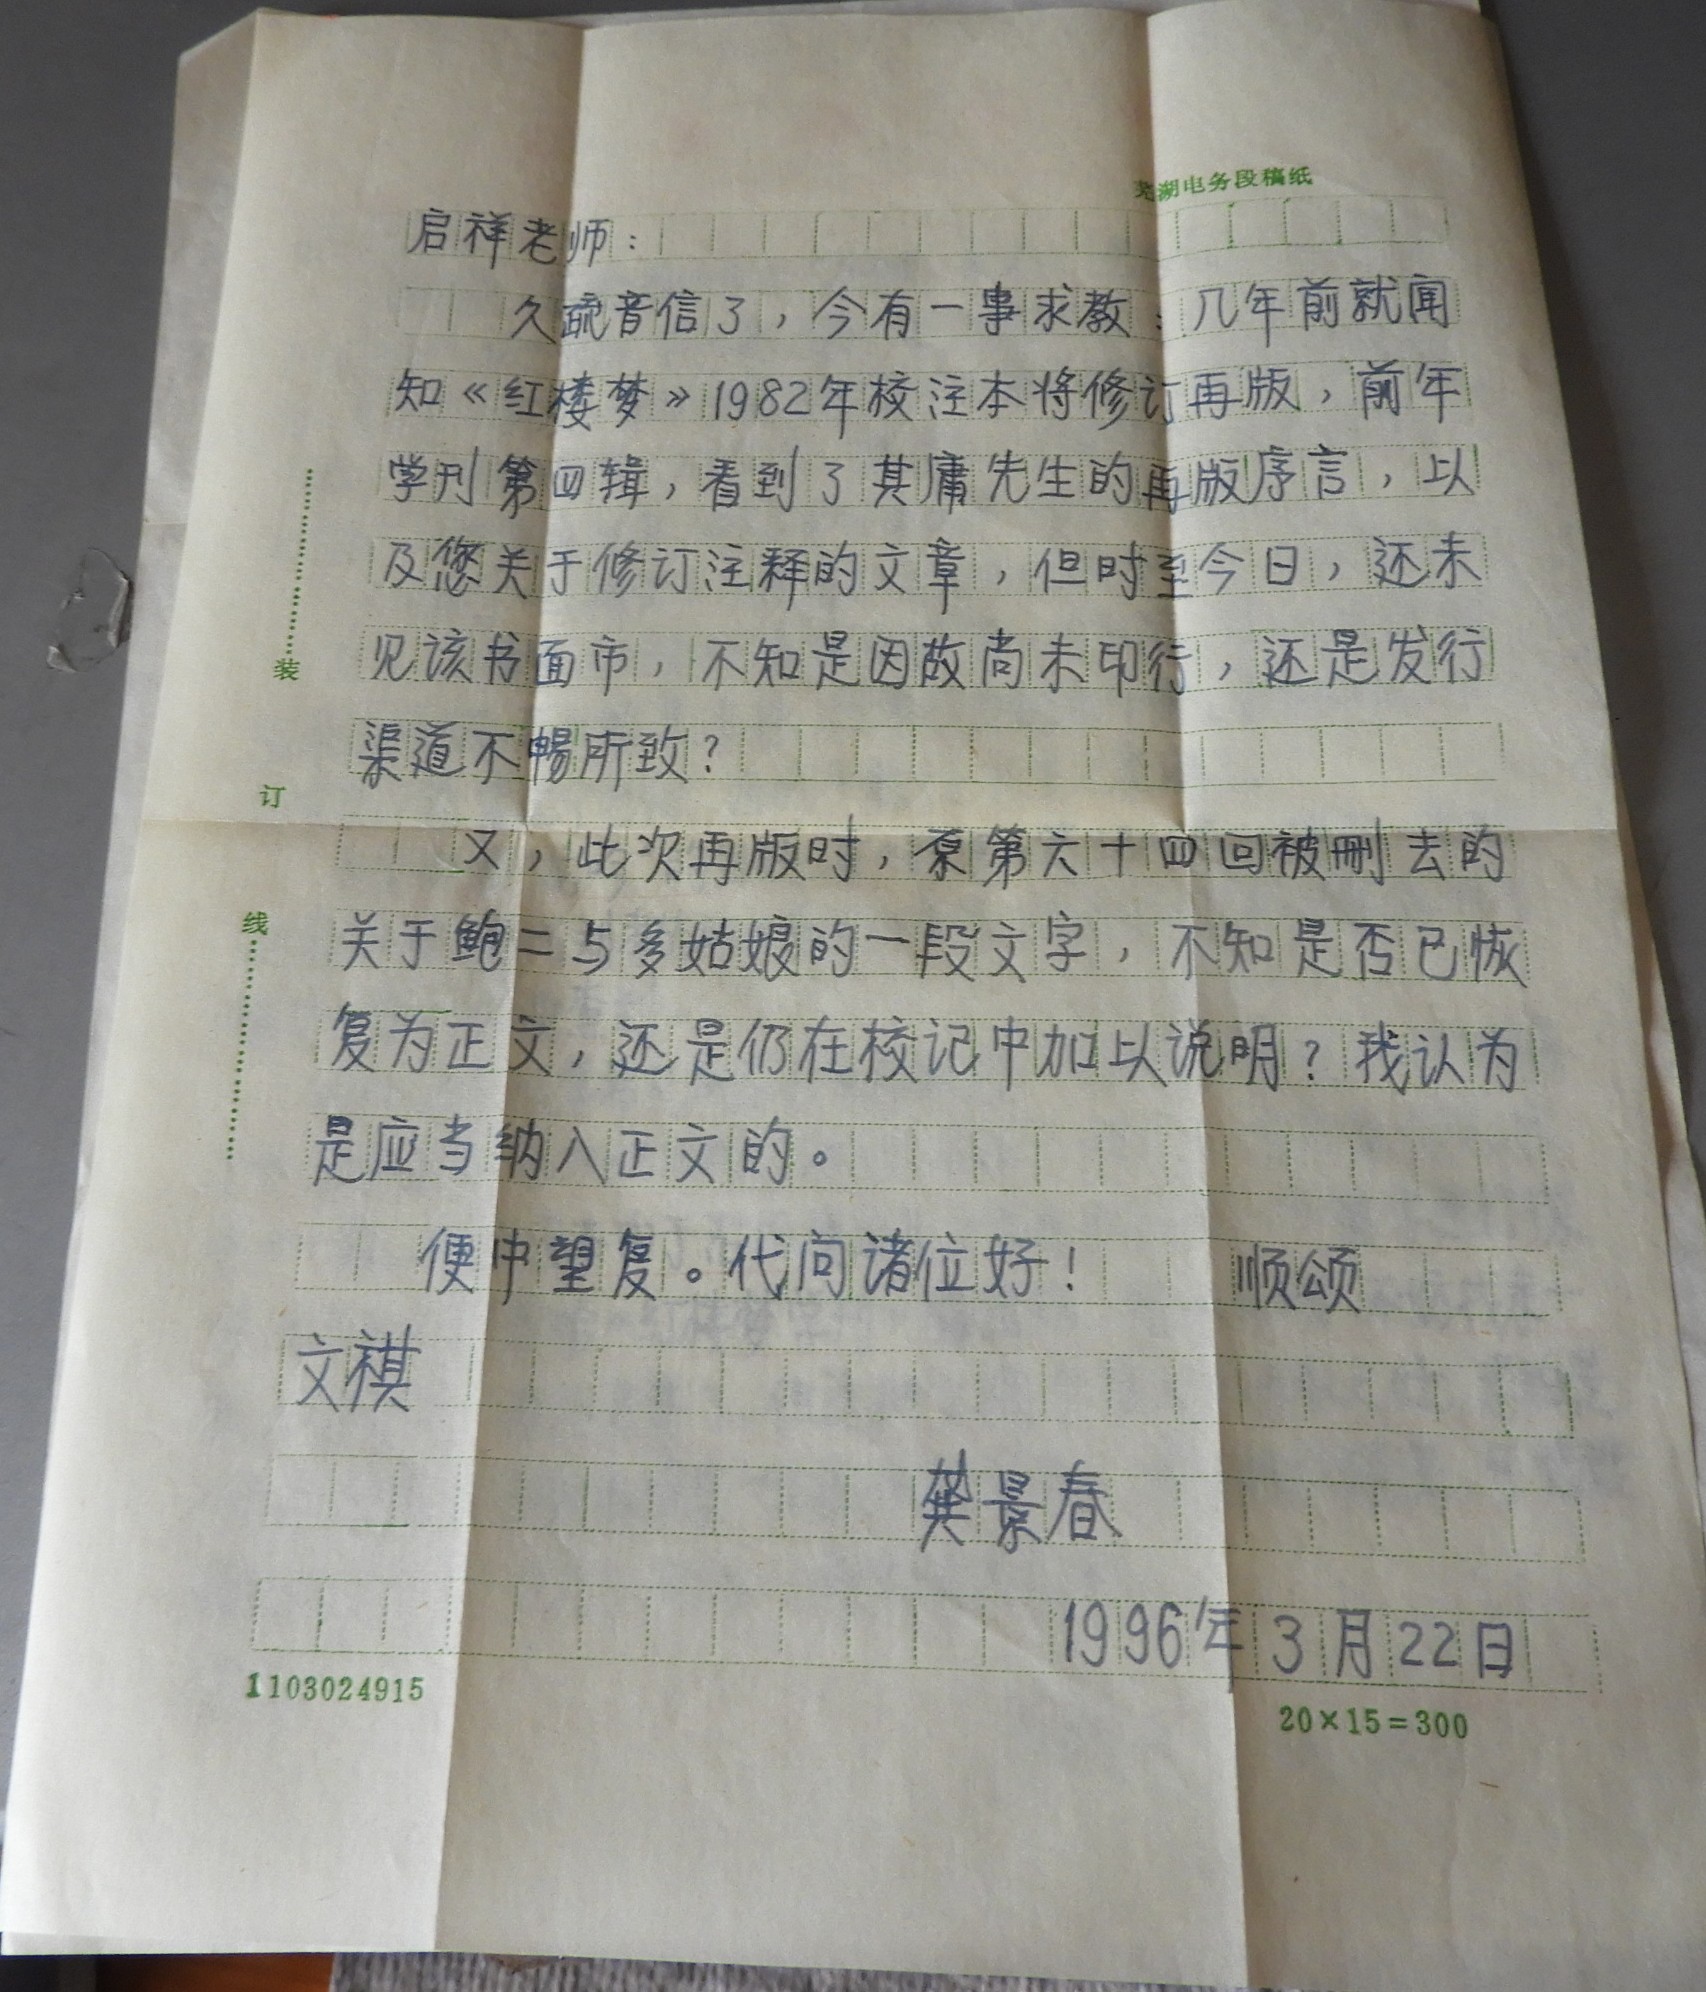 芜湖电务段稿纸
启祥老师：
久疏音信了，今有一事求教：几年前就闻
知《红楼梦》1982年校注本将修订再版，前年
学刊第四辑，看到了其庸先生的再版序言，以
及您关于修订注释的文章，但时至今日，还未
见该书面市，不知是因故尚未印行，还是发行
渠道不畅所致？
又，此次再版时，原第六十四回被删去的
关于鲍二与多姑娘的一段文字，不知是否已恢
复为正文，还是仍在校记中加以说明？我认为
是应当纳入正文的。
便中望复。代问诸位好！ 顺颂
文祺
龚景春
1996年3月22日
装
订
线
1103024915
20×15=300